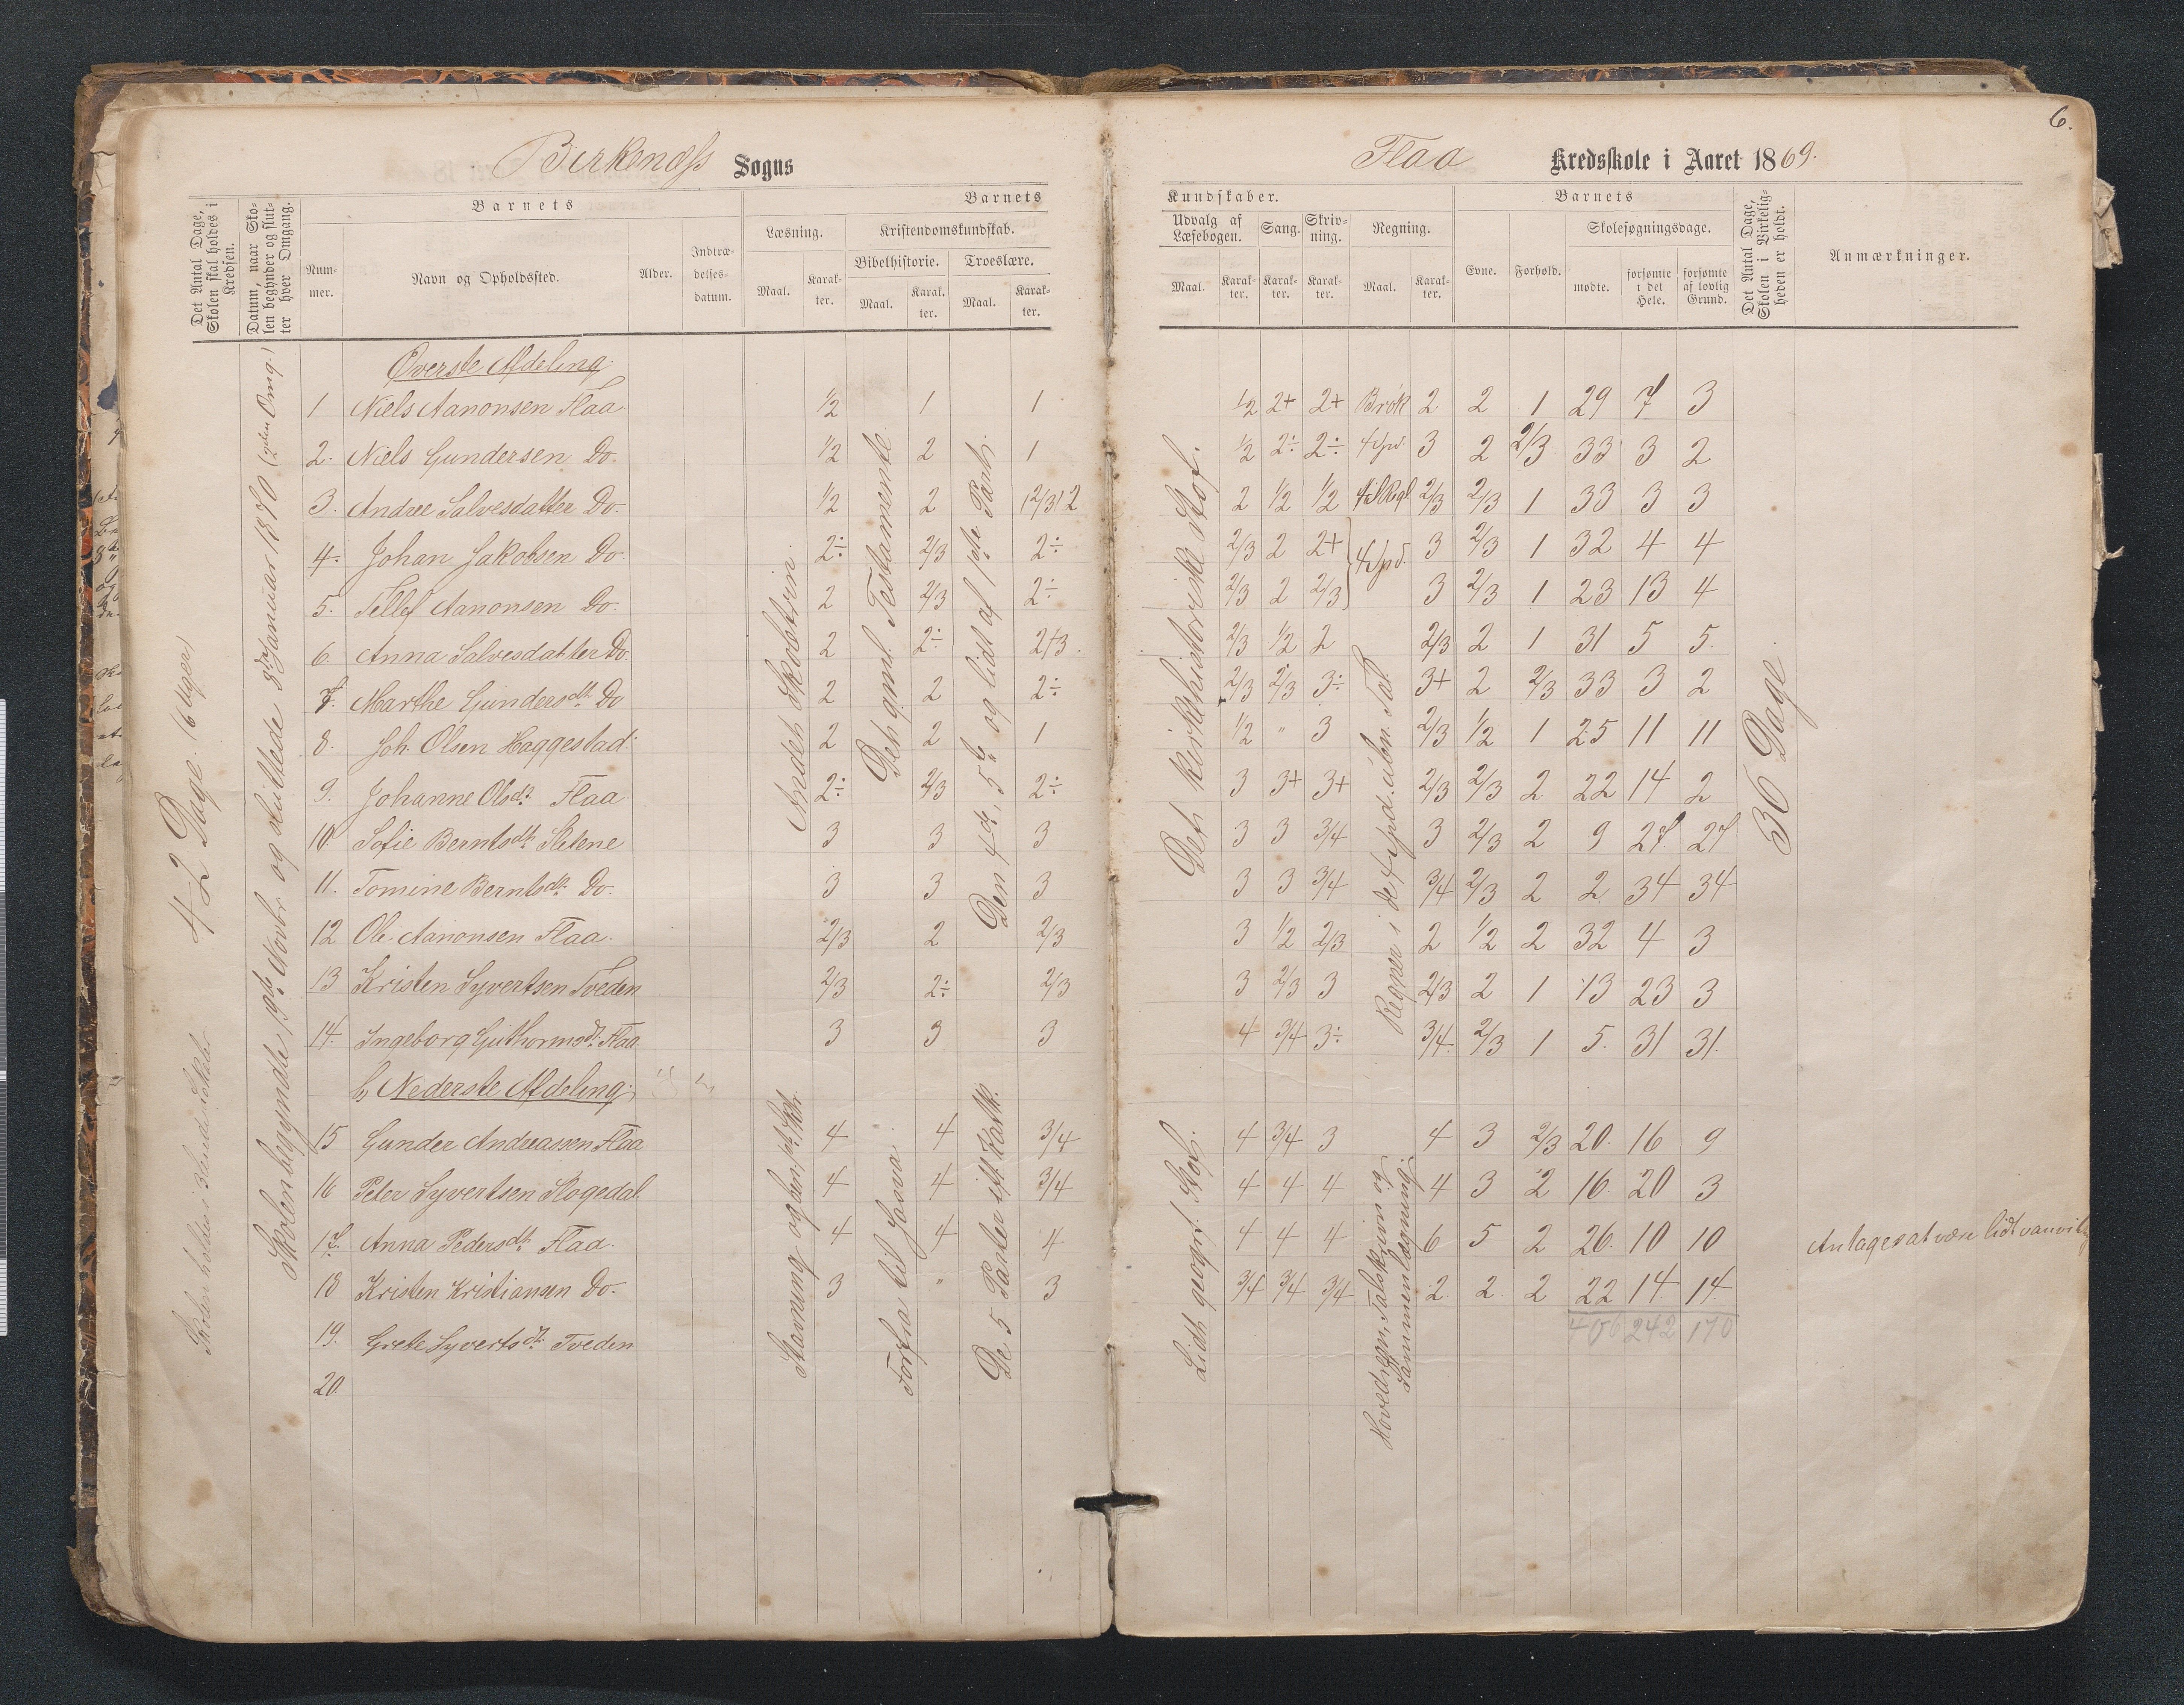 6.
Birkenæss Sogns
Flaa Kredsskole i Aaret 1869.
Det Antal Dage, Skolen skal holdes i Kredsen.
Datum, naar Skolen begynder og slutter hver Omgang.
Barnets
Nummer.
Navn og Opholdssted.
Alder.
Indtrædelsesdatum.
Barnets
Læsning.
Maal.
Karakter.
Kristendomskundskab.
Bibelhistorie.
Maal.
Karakter.
Troeslære.
Maal.
Karakter.
Kundskaber.
Udvalg af Læsebogen.
Maal.
Karakter.
Sang.
Karakter.
Skrivning.
Karakter.
Regning.
Maal.
Karakter.
Barnets
Evne.
Forhold.
Skolesøgningsdage.
mødte.
forsømte i det Hele.
forsømte af lovlig Grund.
Det Antal Dage, Skolen i Virkeligheden er holdt.
Anmærkninger.
42 Dage. (6 Uger)
Skolen begyndte 19de Novbr og sluttede 8de Januar 1870 (2den Omg.)
Andet Skoletrin.
Det gaml. Testamente
Den 4de, 5te og lidt af 1ste Part.
Det kirkehistoriske Stof.
Regner i de 4 spd. ubn. Tal
36 Dage
Øverste Afdeling.
1 Niels Aanonsen Flaa 1/2 1 1 1/2 2+ 2+ Brøk 2 2 1 29 7 3
2. Niels Gundersen Do. 1/2 2 1 1/2 2÷ 2÷ 4 spd. 3 2 2/3 33 3 2
3. Andree Salvesdatter Do. 1/2 2 (2/3) 2 2 1/2 1/2 2/3 2/3 1 33 3 3
4. Johan Jakobsen Do 2÷ 2/3 2÷ 2/3 2 2+ 4 spd. 3 2/3 1 32 4 4
5. Tellef Aanonsen Do. 2 2/3 2÷ 2/3 2 2/3 3 2/3 1 23 13 4
6. Anna Salvesdatter Do. 2 2÷ 2/3. 2/3 1/2 2 2/3 2 1 31 5 5.
7. Marthe Gundersdt. Do 2 2 2÷ 2/3 2/3 3÷ 3+ 2 2/3 33 3 2
8. Joh. Olsen Haggestad 2 2 1 1/2 " 3 2/3 1/2 1 25 11 11
9. Johanne Olsdt. Flaa 2÷ 2/3 2÷ 3 3+ 3+ 2/3 2/3 2 22 14 2
10 Sofie Berntsdt. Sletene 3 3 3 3 3 3/4 3 2/3 2 9 27 27
11. Tomine Berntsdt. Do. 3 3 3 3 3 3/4 3/4 2/3 2 2. 34 34
12 Ole Aanonsen Flaa. 2/3 2 2/3 3 1/2 2/3 2 1/2 2 32 4 3
13 Kristen Syvertsen Tveden 2/3 2÷ 2/3 3 2/3 3 2/3 2 1 13 23 3
14. Ingeborg Guthormsdt. Flaa 3 3 3 4 3/4 3÷ 3/4. 2/3 1 5. 31 31.
b, Nederste Afdeling.
Forfra til Josva.
Lidt geogrf. Stof.
Hovedregn, Talskrivn og Sammenlægning.
15 Gunder Andreassen Flaa 4 4 3/4 4 3/4 3 4 3 2/3 20. 16 9
16 Peter Syvertsen Skogedal 4 4 3/4 4 4 4 4 3 2 16. 20 3
17. Anna Pedersdt. Flaa. 4 4 4 4 4 4 6 5 2 26. 10 10 Antages at være lidt vanvittig
18 Kristen Kristiansen Do. 3 " 3 3/4 3/4 3/4 2. 2. 2 22 14 14.
406 242 170
19. Grete Syvertsdt. Tveden
20.